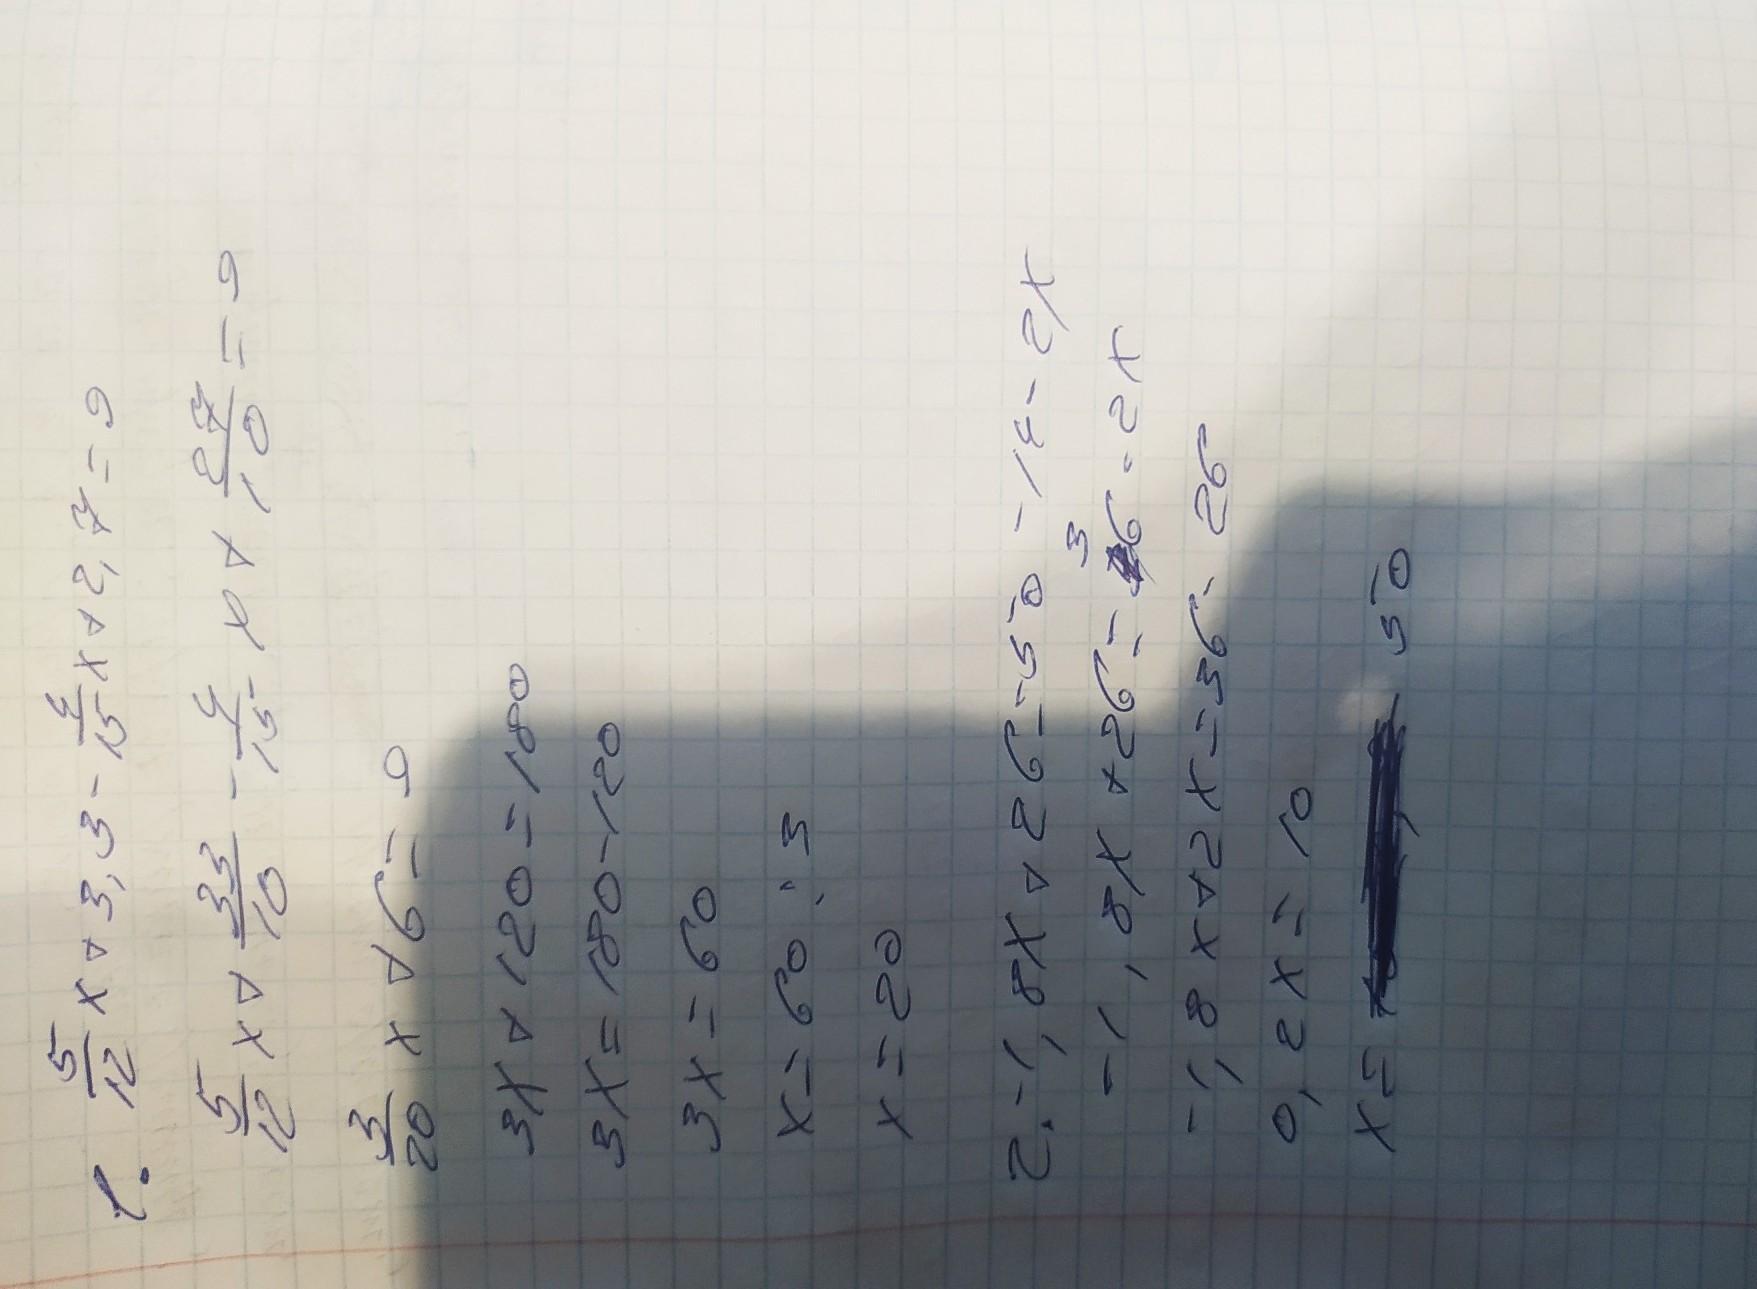 1. 5/12 x + 3,3 - 4/15 x + 2,7 = 9
5/12 x + 33/10 - 4/15 x + 27/10 = 9
3/20 x + 6 = 9
3x + 120 = 180
3x = 180 - 120
3x = 60
x = 60 : 3
x = 20
2. -1,8x + 26 = 50 - 14 - 2x
-1,8x + 26 = 36 - 2x
-1,8x + 2x = 36 - 26
0,2x = 10
x = 50